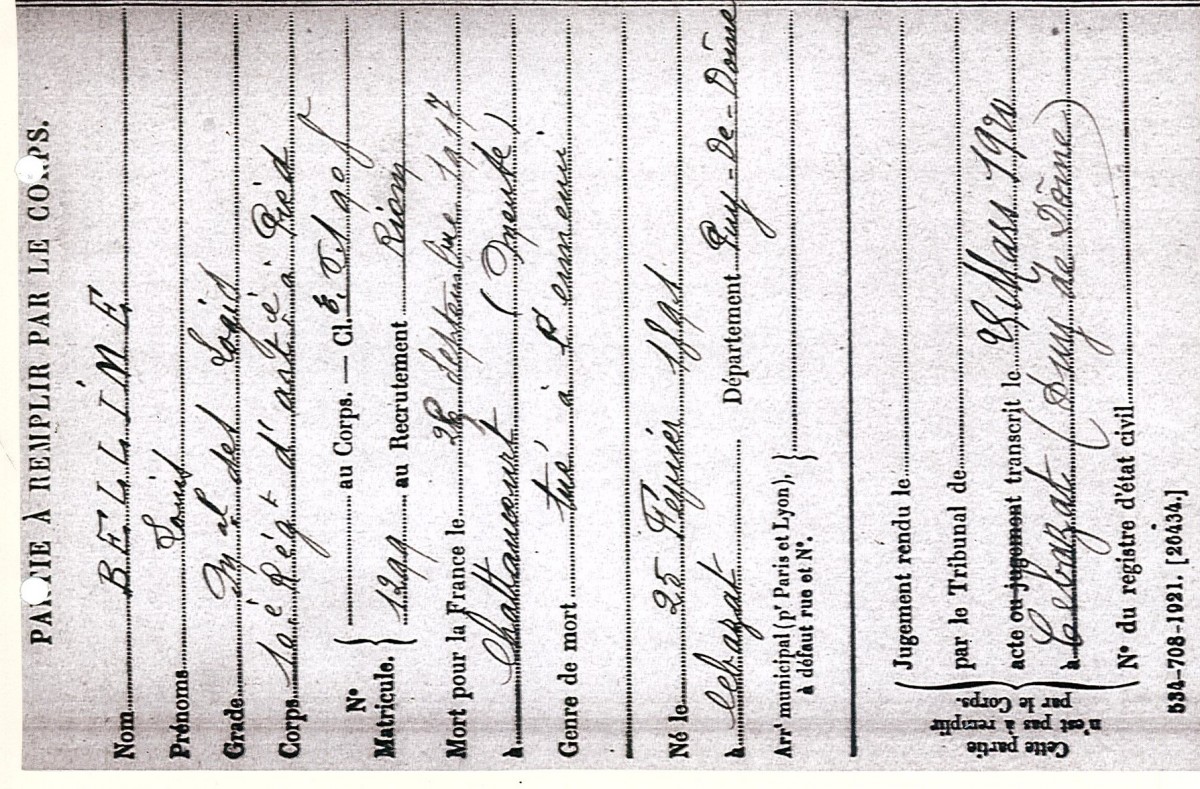 PARTIE À REMPLIR PAR LE CORPS.
Nom BELLIME
Prénoms Louis
Grade Mal des Logis
Corps Régt d'artie à Pied
N° au Corps. — Cl.
Matricule. 1299 au Recrutement Riom
Mort pour la France le 28 Septembre 1917
à Chattancourt (Meuse)
Genre de mort tué à l'ennemi
Né le 25 Février 1891
à Cebazat Département Puy-De-Dôme
Arrt municipal (pr Paris et Lyon),
à défaut rue et N°.
Cette partie
n'est pas à remplir
par le Corps.
Jugement rendu le
par le Tribunal de
acte ou jugement transcrit le 28 Mars 1920
à Cebazat (Puy de Dôme)
N° du registre d'état civil
534-708-1921. [26434.]